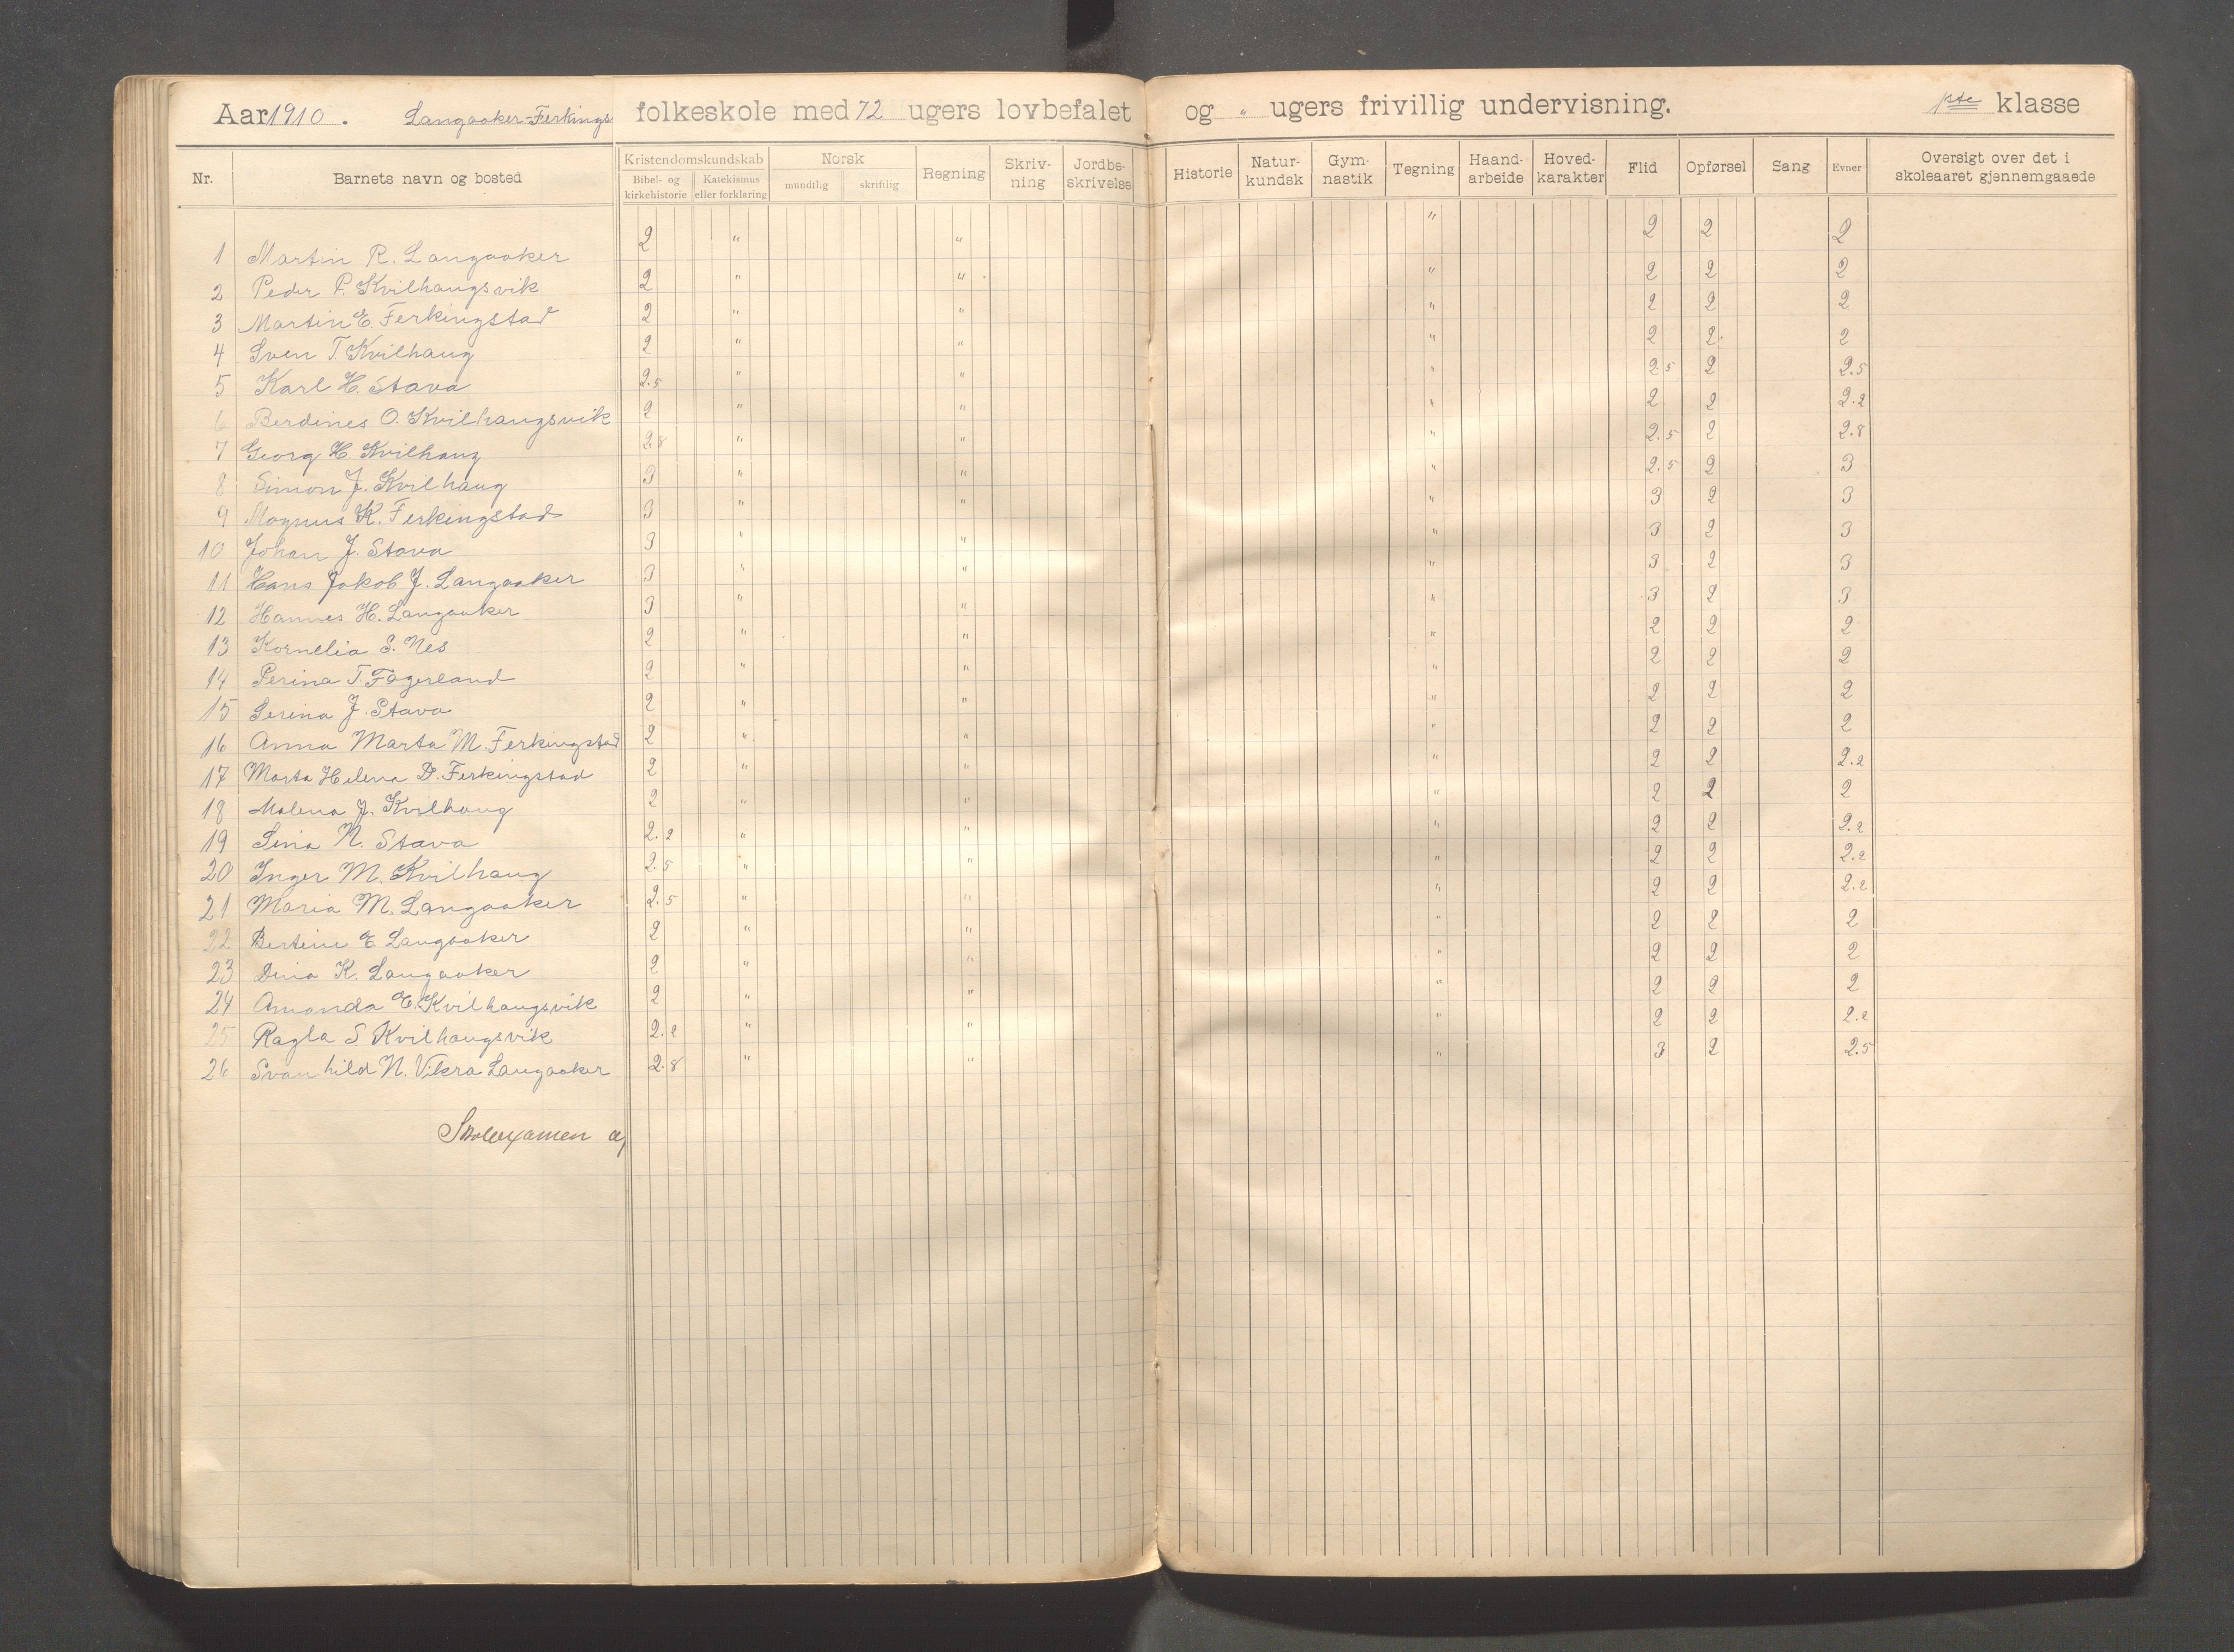 Aar 1910. Langaaker-Ferkings folkeskole med 12 ugers lovbefalet og " ugers frivillig undervisning. 1ste klasse
Nr. Barnets navn og bosted Kristendomskundskab Bibel- og kirkehistorie Katekismus eller forklaring Norsk mundtlig skriftlig Regning Skriv-ning Jordbe-skrivelse Historie Natur-kundsk Gym-nastik Tegning Haand-arbeide Hoved-karakter Flid Opførsel Sang Evner Oversigt over det i skoleaaret gjennemgaaede
1 Martin R. Langaaker 2 " " " 2 2 2
2 Peder P. Kvilhaugsvik 2 " " " 2 2 2
3 Martin E. Ferkingstad 2 " " " 2 2 2
4 Sven T. Kvilhaug 2 " " " 2 2 2
5 Karl H. Stava 2.5 " " " 2.5 2 2.5
6 Berdines O. Kvilhaugsvik 2 " " " 2 2 2.2
7 Georg H Kvilhaug 2.8 " " " 2.5 2 2.8
8 Simon J. Kvilhaug 3 " " " 2.5 2 3
9 Magnus K. Ferkingstad 3 " " " 3 2 3
10 Johan J. Stava 3 " " " 3 2 3
11 Hans Jakob J. Langaaker 3 " " " 3 2 3
12 Hannes H. Langaaker 3 " " " 3 2 3
13 Kornelia S. Nes 2 " " " 2 2 2
14 Perina T. Fagerland 2 " " " 2 2 2
15 Serina J. Stava 2 " " " 2 2 2
16 Anna Marta M. Ferkingstad 2 " " " 2 2 2
17 Marta Helena D. Ferkingstad 2 " " " 2 2 2.2
18 Malena J. Kvilhaug 2 " " " 2 2 2
19 Sina N. Stava 2.2 " " " 2 2 2.2
20 Inger M. Kvilhaug 2.5 " " " 2 2 2.2
21 Maria M. Langaaker 2.5 " " " 2 2 2.2
22 Bertine E Langaaker 2 " " " 2 2 2
23 Dina K. Langaaker 2 " " " 2 2 2
24 Amanda E. Kvilhaugsvik 2 " " " 2 2 2
25 Ragla S Kvilhaugsvik 2.2 " " " 2 2 2.2
26 Svanhild N. Vikra Langaaker 2.8 " " " 3 2 2.5
Skolexamen